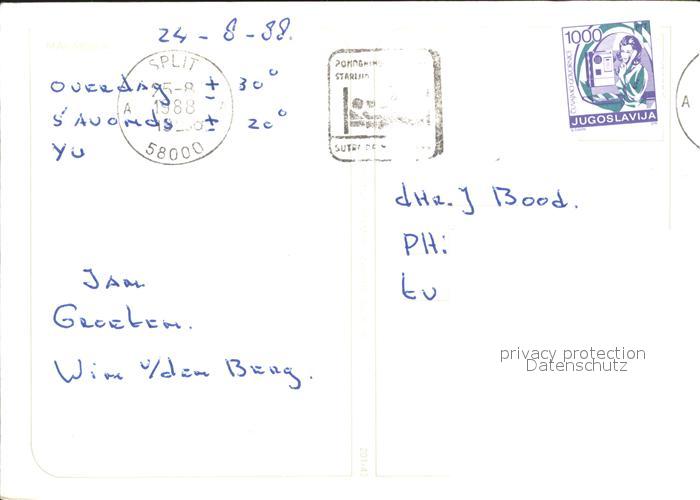 24-8-88.
overdag ± 30°
s'avonds ± 20°
YU
Jan
Groeten.
Wim v/den Berg.
SPLIT
1988
A
58000
POMOGNIMO
STARIJIM
SUTRA
1000
JUGOSLAVIJA
A
dHr. J Bood.
PH:
tu
privacy protection
Datenschutz